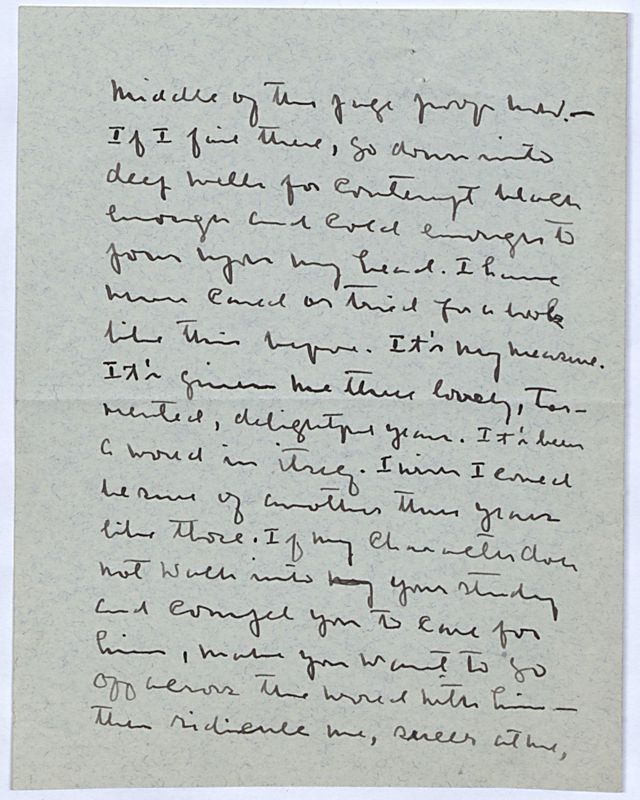 Middle of the page proofs now.—
If I fail there, go down into
deep wells for contempt black
enough and cold enough to
pour upon my head. I have
never cared or tried for a book
like this before. It's my measure.
It's given me three lovely, tor-
mented, delightful years. It's been
a world in itself. I wish I could
be sure of another three years
like those. If my character does
not walk into my your study
and compel you to care for
him, make you want to go
off across the world with him—
then ridicule me, sneer at me,